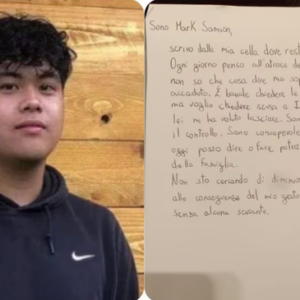 Sono Mark Samson,
scrivo dalla mia cella dove
Ogni giorno penso all'atroce
non so che cosa
accaduto. È banale chiedere
ma voglio chiedere scusa a
lei mi ha voluto lasciare.
il controllo. Sono consapevole
oggi posso dire o fare
della famiglia.
Non sto cercando di
alle conseguenze del mio
senza alcuna